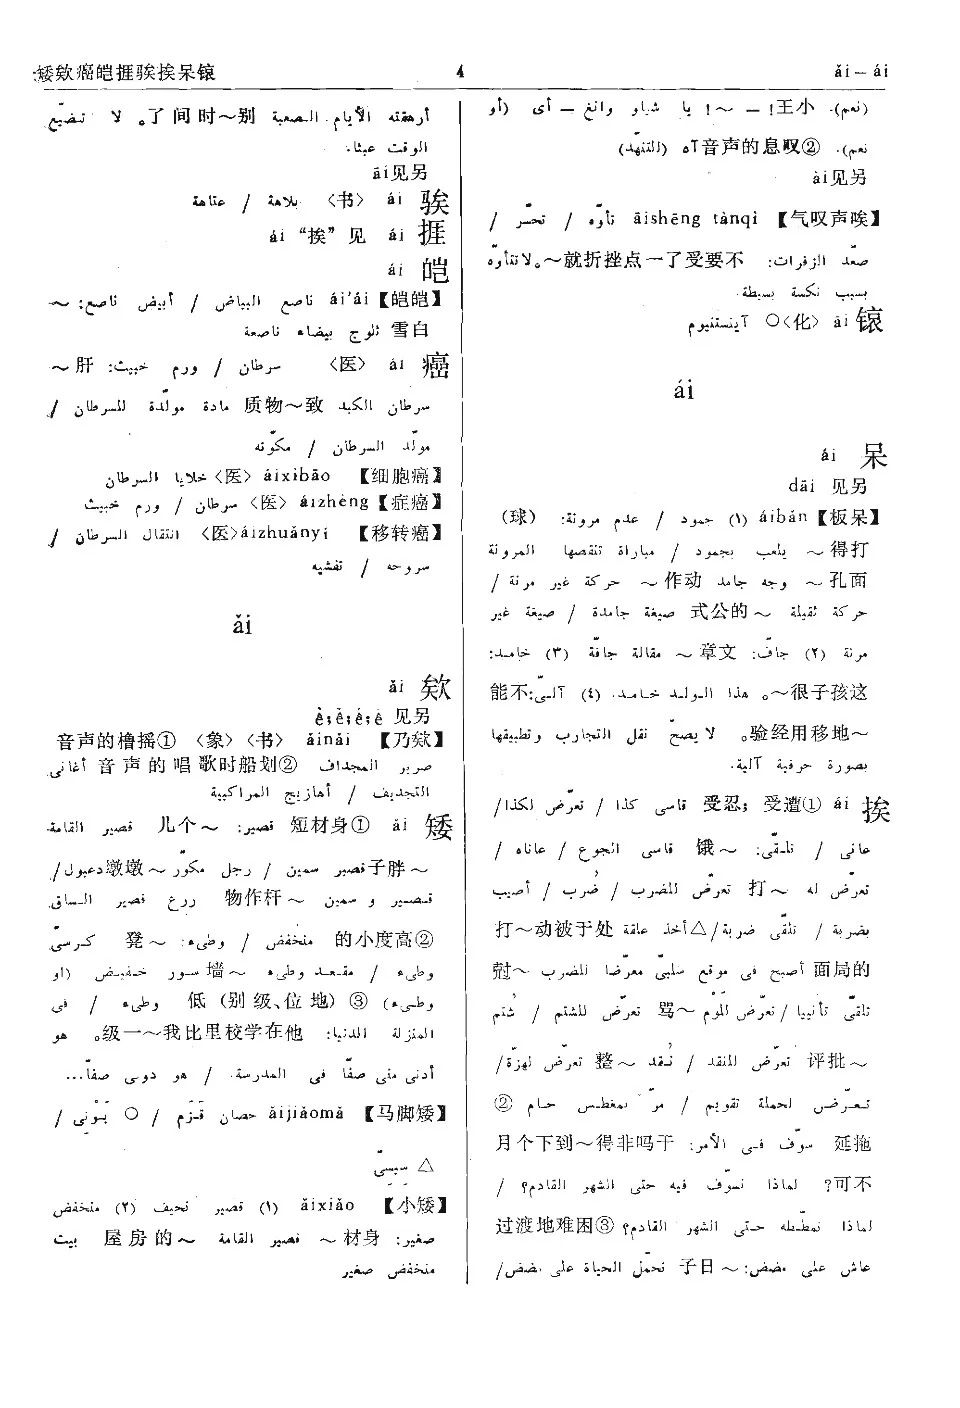 ǎi — ái
4
锿呆挨骏捱皑癌欸矮
(نعم). 小王! — ~! يا شياو وانغ — أى (أو
نعم). ②叹息的声音 آه (التنهّد)
另见ài
【唉声叹气】 āishēng tànqì تأوّه / تحسّر /
صعّد الزفرات: 不要受了一点挫折就~。لاتتأوّه
بسبب نكسة بسيطة.
锿 āi 〈化〉○ آينستنيوم
ái
呆 ái
另见 dāi
【呆板】áibǎn (١) جمود / عدم مرونة: (球)
打得~ يلعب بجمود / مباراة تنقصها المرونة
面孔~ وجه جامد 动作~ حركة غير مرنة /
حركة ثقيلة ~的公式 صيغة جامدة / صيغة غير
مرنة (٢) جافّ: 文章~ مقالة جافّة (٣) خامد:
这孩子很~。هذا الولد خامد. (٤) آليّ: 不能
~地移用经验。لا يصحّ نقل التجارب وتطبيقها
بصورة حرفية آلية.
挨 ái ①遭受；忍受 قاسى كذا / تعرّض لكذا /
عانى / تلقّى: ~饿 قاسى الجوع / عاناه /
تعرّض له ~打 تعرّض للضرب / ضُرب / أصيب
بضربة / تلقّى ضربة /△أخذ علقة 处于被动~打
的局面 أصبح فى موقع سلبىّ معرّضا للضرب ~尅
تلقّى تأنيبا / تعرّض للّوم ~骂 تعرّض للشتم / شُتم
~批评 تعرّض للنقد / نُقد ~整 تعرّض لهزّة /
تعرّض لحملة تقويم / مرّ بمغطس حام ②
拖延 سوّف فى الأمر: 干吗非得~到下个月
不可? لماذا نسوّف فيه حتى الشهر القادم؟ /
لماذا نمطّطه حتى الشهر القادم؟ ③困难地渡过
عاش على مضض: ~日子 تحمّل الحياة على مضض /
أرهقته الأيام الصعبة 别~时间了。لا تضيّع
الوقت عبثا.
另见āi
骏 ái 〈书〉 بلاهة / عتاهة
捱 ái 见 “挨” ái
皑 ái
【皑皑】ái'ái ناصع البياض / أبيض ناصع: ~
白雪 ثلوج بيضاء ناصعة
癌 ái 〈医〉 سرطان / ورم خبيث: 肝~
سرطان الكبد 致~物质 مادة مولّدة للسرطان /
مولّد السرطان / مكوّنه
【癌细胞】 áixìbāo〈医〉خلايا السرطان
【癌症】áizhèng〈医〉سرطان / ورم خبيث
【癌转移】 áizhuǎnyí〈医〉 انتقال السرطان /
سروحه / تفشيه
ǎi
欸 ǎi
另见 ē; é; ě; è
【欸乃】 ǎinǎi 〈书〉〈象〉 ①摇橹的声音
صرير المجداف ②划船时歌唱的声音 أغانى
التجديف / أهازيج المراكبية
矮 ǎi ①身材短 قصير: ~个儿 قصير القامة
~胖子 قصير سمين / رجل مكوّر ~墩墩 دعبول /
قصير و سمين ~杆作物 زرع قصير الساق
②高度小的 منخفض / وطىء: ~凳 كرسىّ
وطىء / مقعد وطىء ~墙 سور خفيض (او
وطىء) ③(地位、级别) 低 وطىء / فى
المنزلة الدنيا: 他在学校里比我~一级。هو
أدنى منى صفّا فى المدرسة. / هو دونى صفّا...
【矮脚马】 ǎijiǎomǎ حصان قَزَم / ○ بَوْنِى /
△ سِيسِىّ
【矮小】 ǎixiǎo (١) قصير نحيف (٢) منخفض
صغير: 身材~ قصير القامة ~的房屋 بيت
منخفض صغير